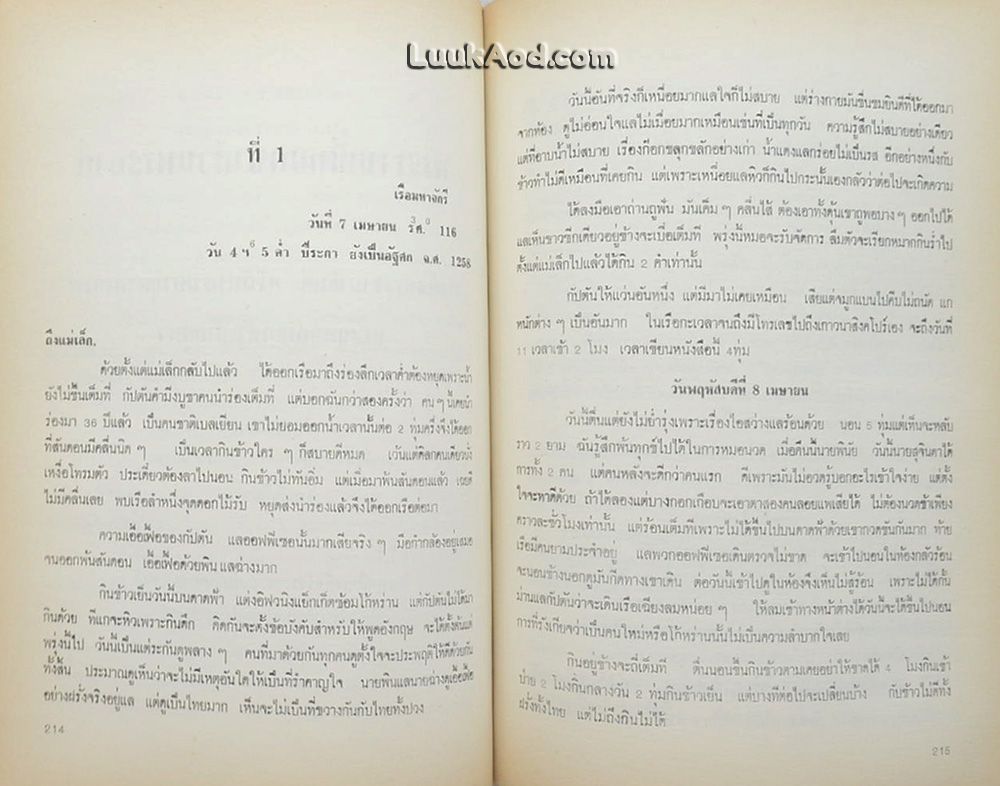 LuukAod.com
ที่ 1
เรือมหาจักรี
วันที่ 7 เมษายน ร๓๐ศ. 116
วัน 4 ฯ 5 ค่ำ ปีระกา ยังเป็นอัฐศก จ.ศ. 1258
ถึงแม่เล็ก,
ด้วยตั้งแต่แม่เล็กกลับไปแล้ว ได้ออกเรือมาถึงร่องลึกเวลาค่ำต้องหยุดเพราะน้ำ
ยังไม่ขึ้นเต็มที่ กัปตันคำมึงบูชาคนนำร่องเต็มที่ แต่บอกฉันกว่าสองครั้งว่า คน ๆ นี้เคยนำ
ร่องมา 36 ปีแล้ว เป็นคนชาติเบลเยียน เขาไม่ยอมออกน้ำเวลานั้นต่อ 2 ทุ่มครึ่งจึงได้ออก
ที่สันดอนมีคลื่นนิด ๆ เป็นเวลากินข้าวใคร ๆ ก็สบายดีหมด เว้นแต่ดิลกคนเดียวนั่ง
เหงื่อโทรมตัว ประเดี๋ยวต้องลาไปนอน กินข้าวไม่ทันอิ่ม แต่เมื่อมาพ้นสันดอนแล้ว เฉยดี
ไม่มีคลื่นเลย พบเรือลำหนึ่งจุดดอกไม้รับ หยุดส่งนำร่องแล้วจึงได้ออกเรือต่อมา
ความเอื้อเฟื้อของกัปตัน แลออฟฟิเซอนั้นมากเสียจริง ๆ มือกำกล้องอยู่เสมอ
จนออกพ้นสันดอน เอื้อเฟื้อด้วยพิน แลฉ่างมาก
กินข้าวเย็นวันนี้บนดาดฟ้า แต่งอิฟวนิงแย็กเก็ตซ้อมโก้หร่าน แต่กัปตันไม่ได้มา
กินด้วย ทีแกจะหิวเพราะกินดึก คิดกันจะตั้งข้อบังคับสำหรับให้พูดอังกฤษ จะได้ตั้งต้นแต่
พรุ่งนี้ไป วันนี้เป็นแต่ระกันดูพลาง ๆ คนที่มาด้วยกันทุกคนดูตั้งใจจะประพฤติให้ดีด้วยกัน
ทั้งสิ้น ประมาณดูเห็นว่าจะไม่มีเหตุอันใดให้เป็นที่รำคาญใจ นายพินแลนายฉ่างดูเอื้อเฟื้อ
อย่างฝรั่งจริงอยู่แล แต่ดูเป็นไทยมาก เห็นจะไม่เป็นที่ขวางกันกับไทยทั้งปวง
214
วันนี้อันที่จริงก็เหนื่อยมากแลใจก็ไม่สบาย แต่ร่างกายมันชื่นชมยินดีที่ได้ออกมา
จากห้อง ดูไม่อ่อนใจแลไม่เมื่อยมากเหมือนเช่นที่เป็นทุกวัน ความรู้สึกไม่สบายอย่างเดียว
แต่ที่อาบน้ำไม่สบาย เรื่องก๊อกขลุกขลักอย่างเก่า น้ำแดงแลกร่อยไม่เป็นรส อีกอย่างหนึ่งกับ
ข้าวทำไม่ดีเหมือนที่เคยกิน แต่เพราะเหนื่อยแลหิวก็กินไปกระนั้นเองกลัวว่าต่อไปจะเกิดความ
ได้ลงมือเอาถ่านถูฟัน มันเค็ม ๆ คลื่นไส้ ต้องเอาทั้งดุ้นเขาถูพอบาง ๆ ออกไปได้
แลเห็นขาวซีกเดียวอยู่ข้างจะเบื่อเต็มที พรุ่งนี้หมอจะรับจัดการ ลืมตัวจะเรียกหมากกินร่ำไป
ตั้งแต่แม่เล็กไปแล้วได้กิน 2 คำเท่านั้น
กัปตันให้แว่นอันหนึ่ง แต่มีมาไม่เคยเหมือน เสียแต่จมูกแบนไปคีบไม่ถนัด แก
หนักต่าง ๆ เป็นอันมาก ในเรือกะเวลาจนถึงมีโทรเลขไปถึงเกาวนาสิงคโปร์เอง จะถึงวันที่
11 เวลาเช้า 2 โมง เวลาเขียนหนังสือนี้ 4 ทุ่ม
วันพฤหัสบดีที่ 8 เมษายน
วันนี้ตื่นแต่ยังไม่ย่ำรุ่งเพราะเรื่องไอสว่างแลร้อนด้วย นอน 5 ทุ่มแต่เห็นจะหลับ
ราว 2 ยาม ฉันรู้สึกพ้นทุกข์ไปได้ในการหมอนวด เมื่อคืนนี้นายพินัย วันนี้นายสุจินดาได้
การทั้ง 2 คน แต่คนหลังจะดีกว่าคนแรก ดีเพราะมันไม่อวดรู้บอกอะไรเข้าใจง่าย แต่ตั้ง
ใจจะหาดีด้วย ถ้าได้สองแต่บางกอกเกือบจะเอาตาสองคนลอยแพเสียได้ ไม่ต้องนวดข้าเพียง
คราวละชั่วโมงเท่านั้น แต่ร้อนเต็มทีเพราะไม่ได้ขึ้นไปบนดาดฟ้าด้วยเขากวดขันกันมาก ท้าย
เรือมีคนยามประจำอยู่ แลพวกออฟฟีเซอเดินตรวจไม่ขาด จะเข้าไปนอนในห้องกลัวร้อน
จะนอนข้างนอกดูมันกีดทางเขาเดิน ต่อวันนี้เข้าไปดูในห้องจึงเห็นไม่สู้ร้อน เพราะไม่ได้กั้น
ม่านแลกัปตันว่าจะเดินเรือเฉียงลมหน่อย ๆ ให้ลมเข้าทางหน้าต่างได้วันนี้จะได้ขึ้นไปนอน
การที่รังเกียจว่าเป็นคนใหม่หรือโก้หร่านนั้นไม่เป็นความลำบากใจเลย
กินอยู่ข้างจะถี่เต็มที ตื่นนอนขึ้นกินข้าวตามเคยอย่าให้ขาดได้ 4 โมงกินเช้า
บ่าย 2 โมงกินกลางวัน 2 ทุ่มกินข้าวเย็น แต่บางทีต่อไปจะเปลี่ยนบ้าง กับข้าวไม่ดีทั้ง
ฝรั่งทั้งไทย แต่ไม่ถึงกินไม่ได้
215